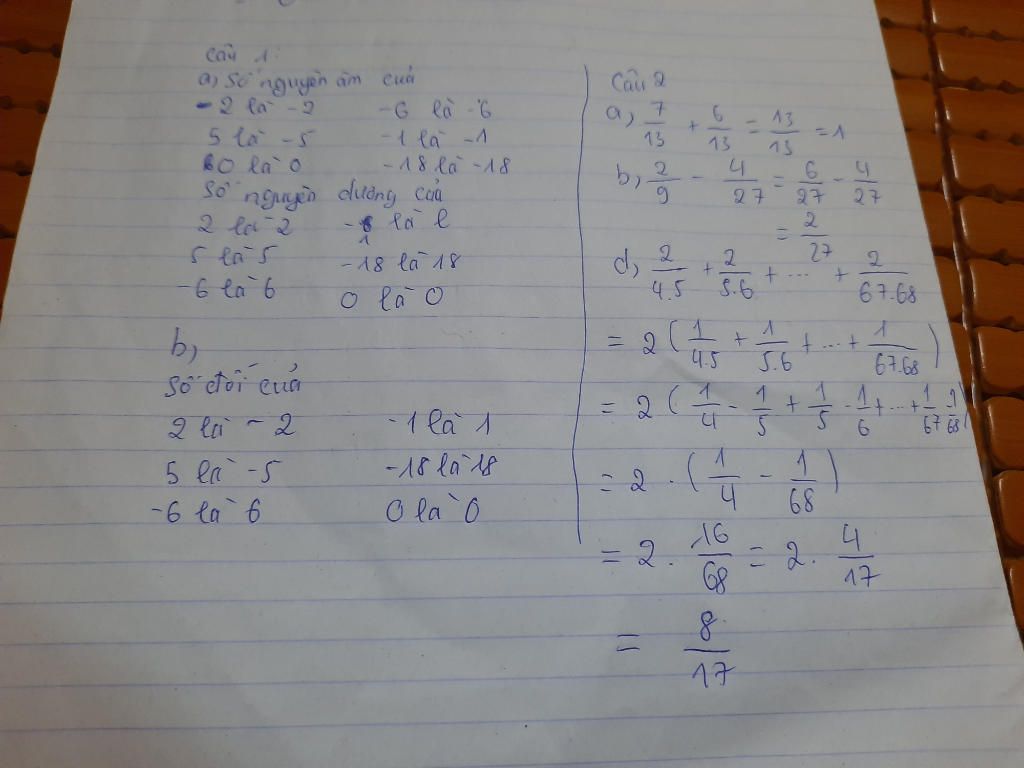 Câu 1:
a, Số nguyên âm của
-2 là -2 -6 là -6
5 là -5 -1 là -1
0 là 0 -18 là -18
Số nguyên dương của
2 là 2 -1 là 1
5 là 5 -18 là 18
-6 là 6 0 là 0
b,
Số đối của
2 là -2 -1 là 1
5 là -5 -18 là 18
-6 là 6 0 là 0
Câu 2
a, 7/13 + 6/13 = 13/13 = 1
b, 2/9 - 4/27 = 6/27 - 4/27
= 2/27
d, 2/4.5 + 2/5.6 + ... + 2/67.68
= 2 (1/4.5 + 1/5.6 + ... + 1/67.68)
= 2 (1/4 - 1/5 + 1/5 - 1/6 + ... + 1/67 - 1/68)
= 2 . (1/4 - 1/68)
= 2 . 16/68 = 2 . 4/17
= 8/17